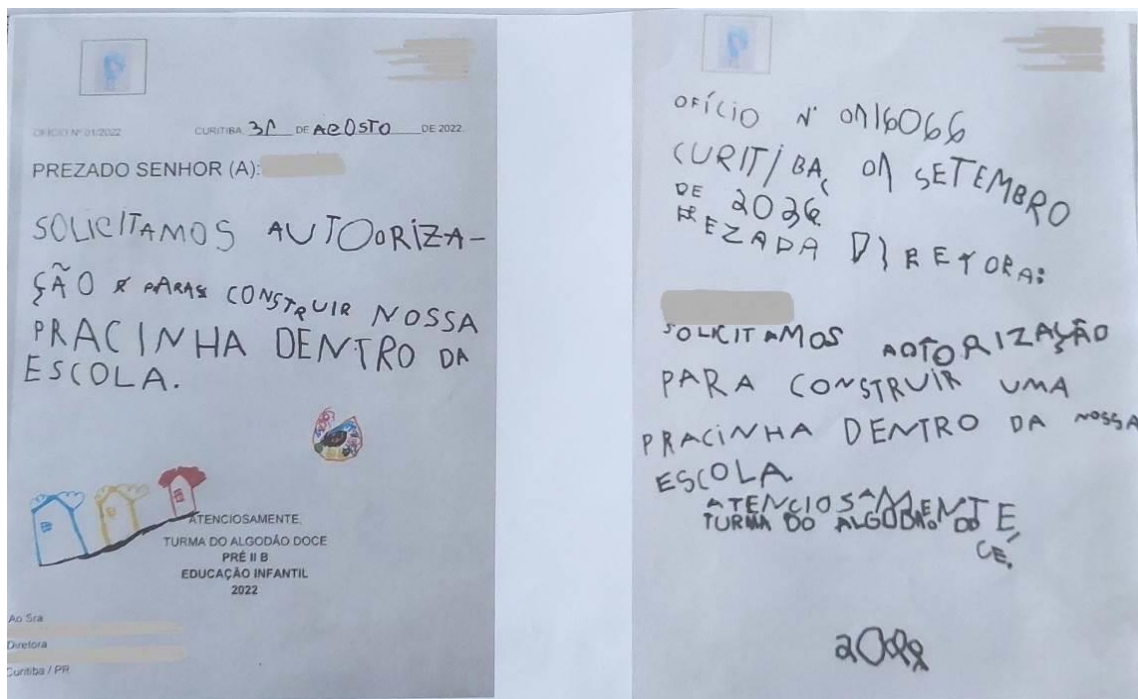 OFÍCIO Nº 01/2022 CURITIBA, 31 DE AGOSTO DE 2022
PREZADO SENHOR (A):
SOLICITAMOS AUTOORIZA-
ÇÃO PARA CONSTRUIR NOSSA
PRACINHA DENTRO DA
ESCOLA.
ATENCIOSAMENTE,
TURMA DO ALGODÃO DOCE
PRÉ II B
EDUCAÇÃO INFANTIL
2022
Ao Sra
Diretora
Curitiba / PR
OFÍCIO Nº
CURITIBA, 01 SETEMBRO
DE
PREZADA DIRETORA:
SOLICITAMOS AOTORIZAÇÃO
PARA CONSTRUIR UMA
PRACINHA DENTRO DA NOSSA
ESCOLA
ATENCIOSAMENTE,
TURMA DO ALGODÃO DO
CE.